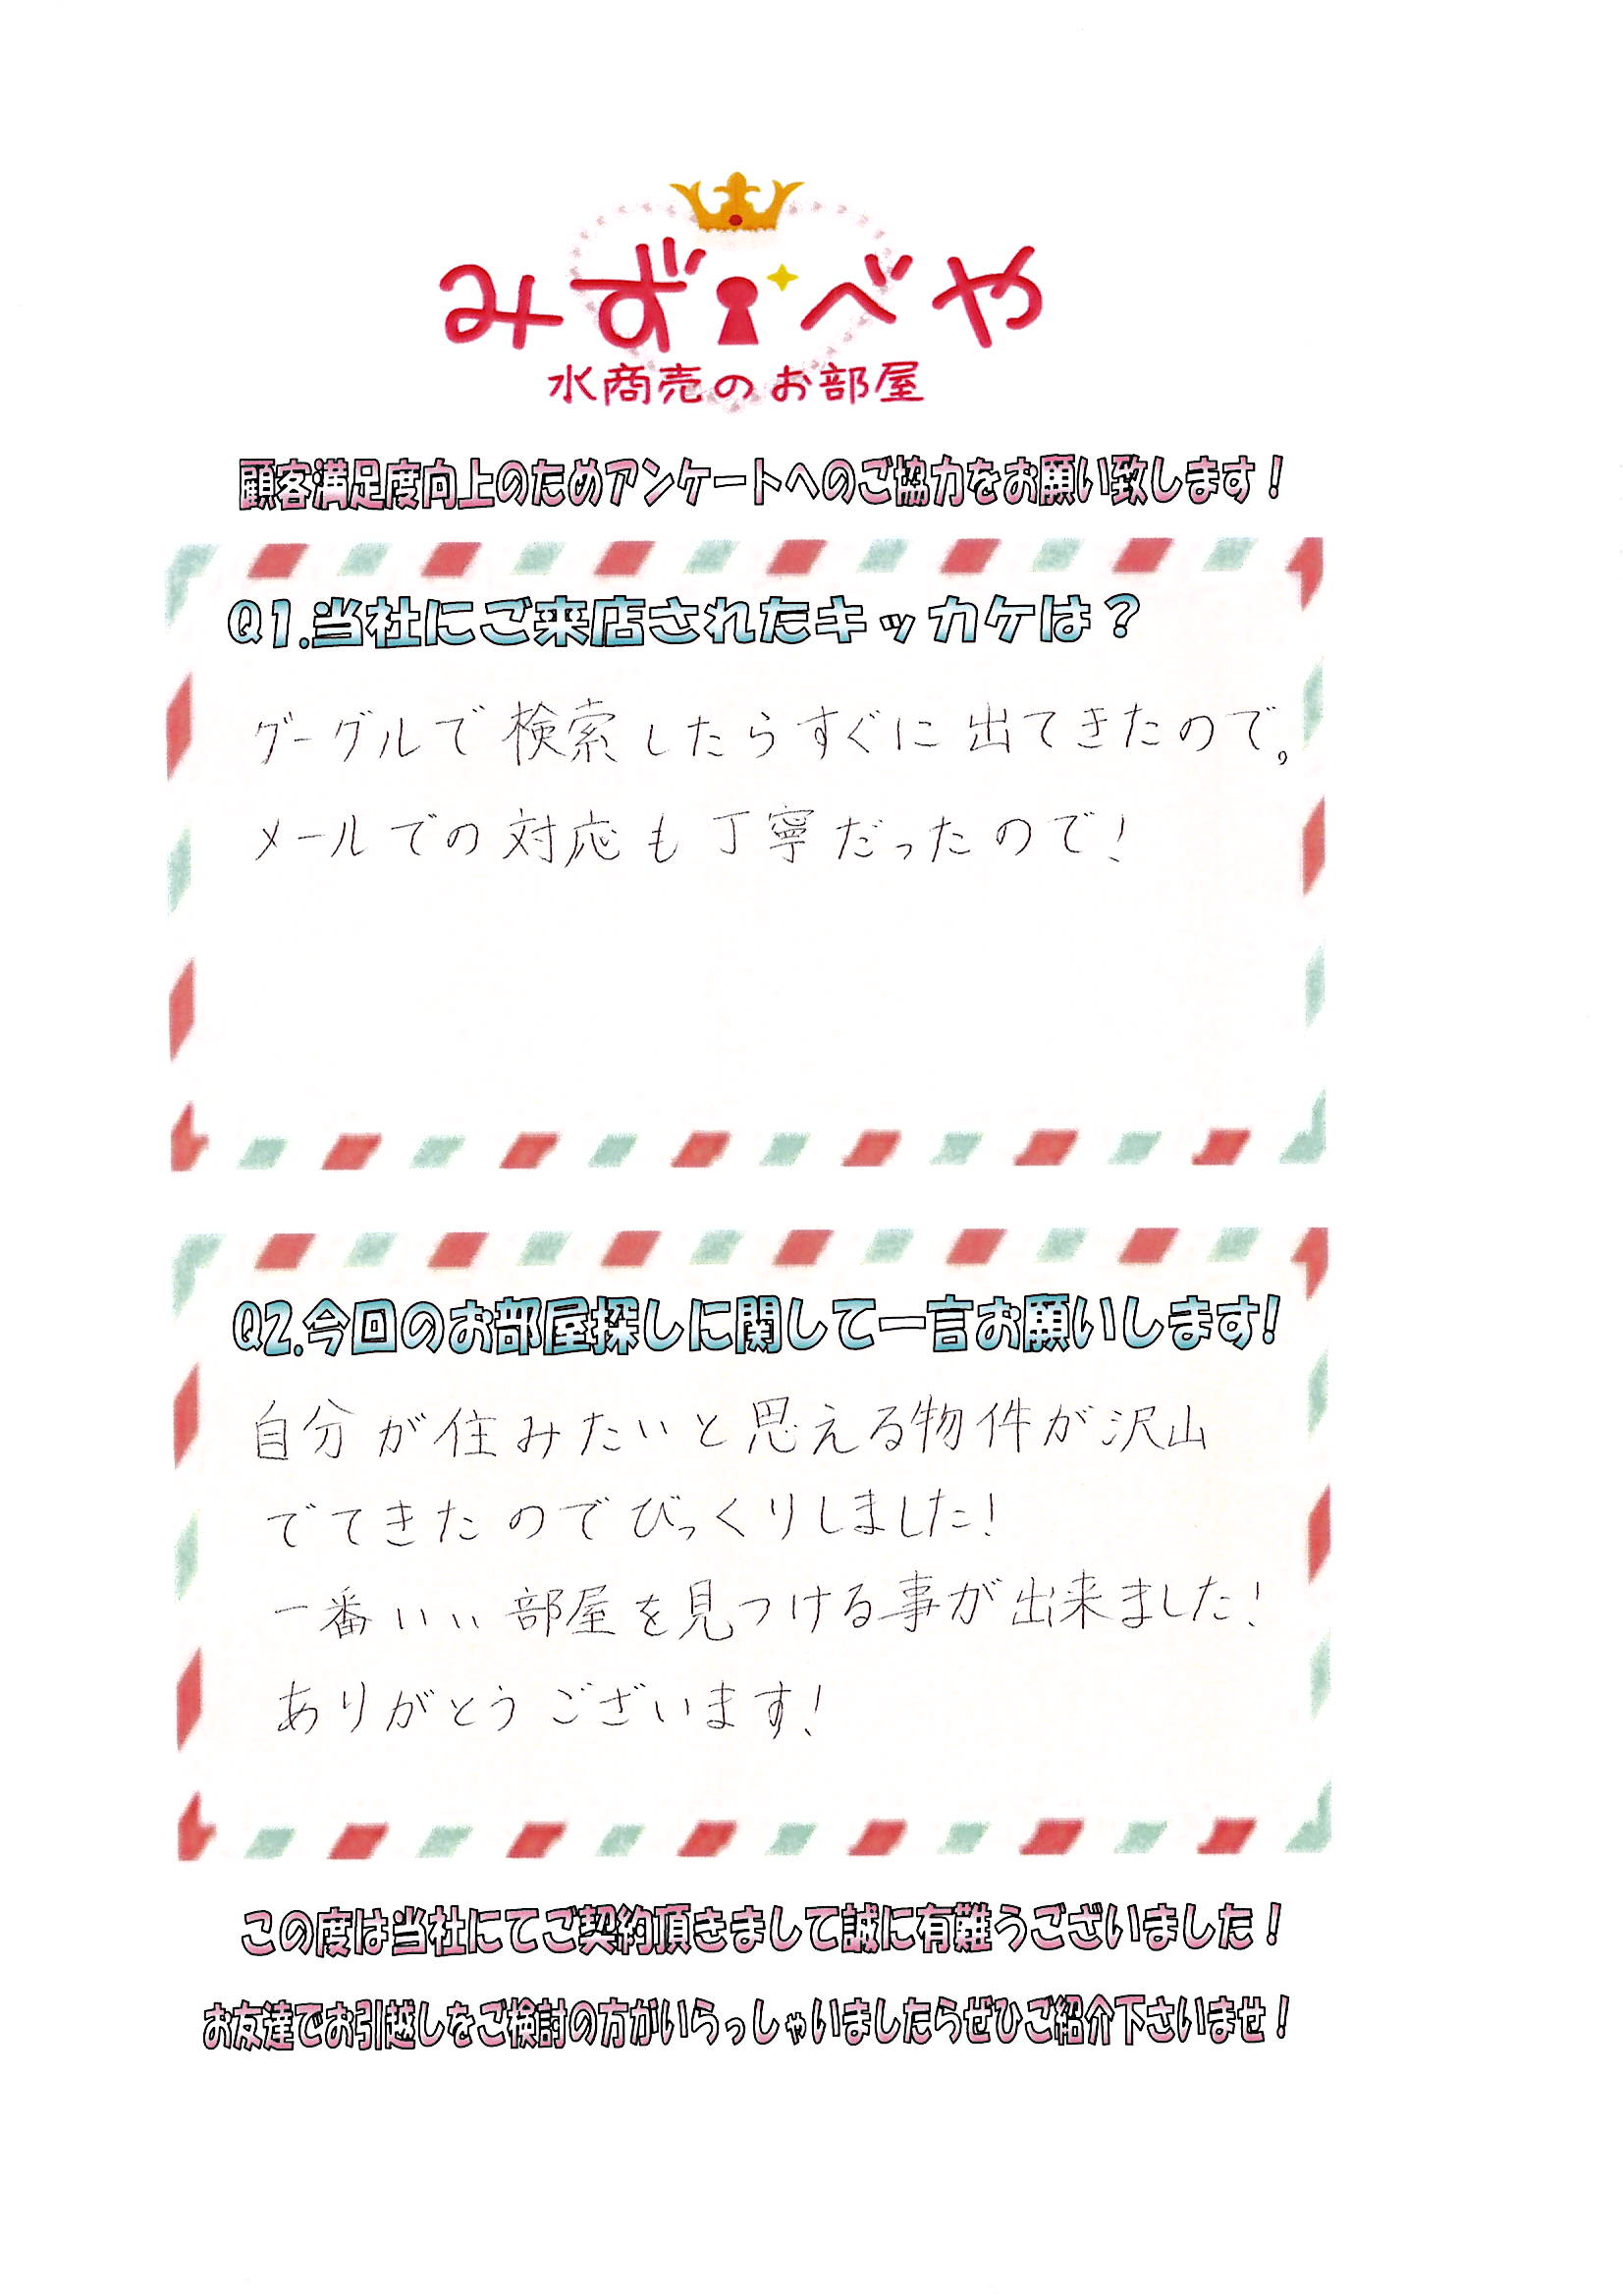 みずべや
水商売のお部屋
顧客満足度向上のためアンケートへのご協力をお願い致します！
Q1.当社にご来店されたキッカケは？
グーグルで検索したらすぐに出てきたので。
メールでの対応も丁寧だったので！
Q2.今回のお部屋探しに関して一言お願いします!
自分が住みたいと思える物件が沢山
でてきたのでびっくりしました！
一番いい部屋を見つける事が出来ました！
ありがとうございます！
この度は当社にてご契約頂きまして誠に有難うございました！
お友達でお引越しをご検討の方がいらっしゃいましたらぜひご紹介下さいませ！